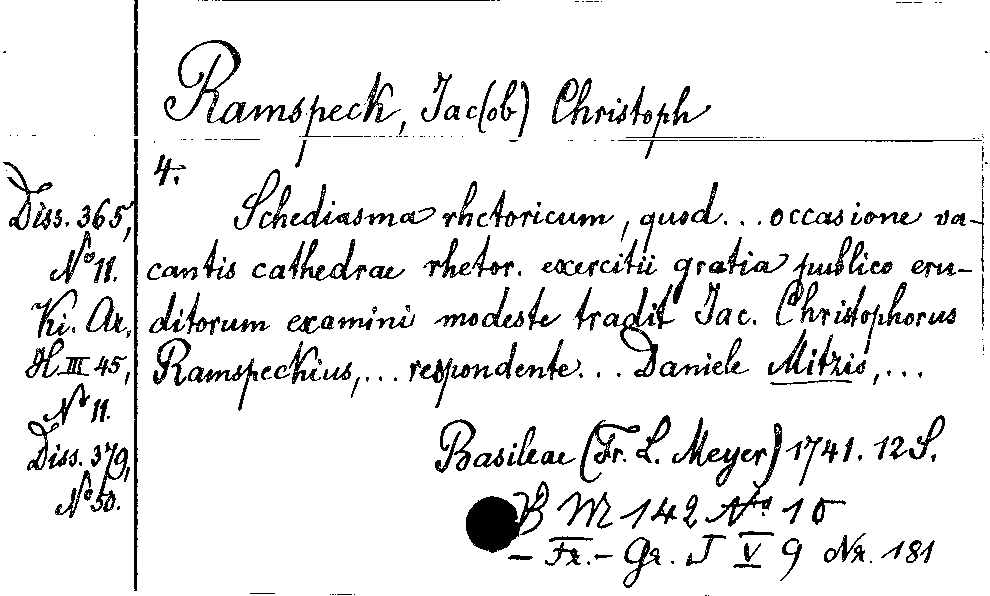 Ramspeck, Jac(ob) Christoph
4.
Schediasma rhetoricum, quod... occasione va-
cantis cathedrae rhetor. exercitii gratia publico eru-
ditorum examini modeste tradit Jac. Christophorus
Ramspeckius,... respondente... Daniele Mitzio,...
Basileae (Fr. L. Meyer) 1741. 12 S.
B M 142 No 10
- Fr. - Gr. J V 9 Nr. 181
Diss. 365,
No 11.
Ki. Ar.
H III 45,
No 11.
Diss. 379,
No 50.